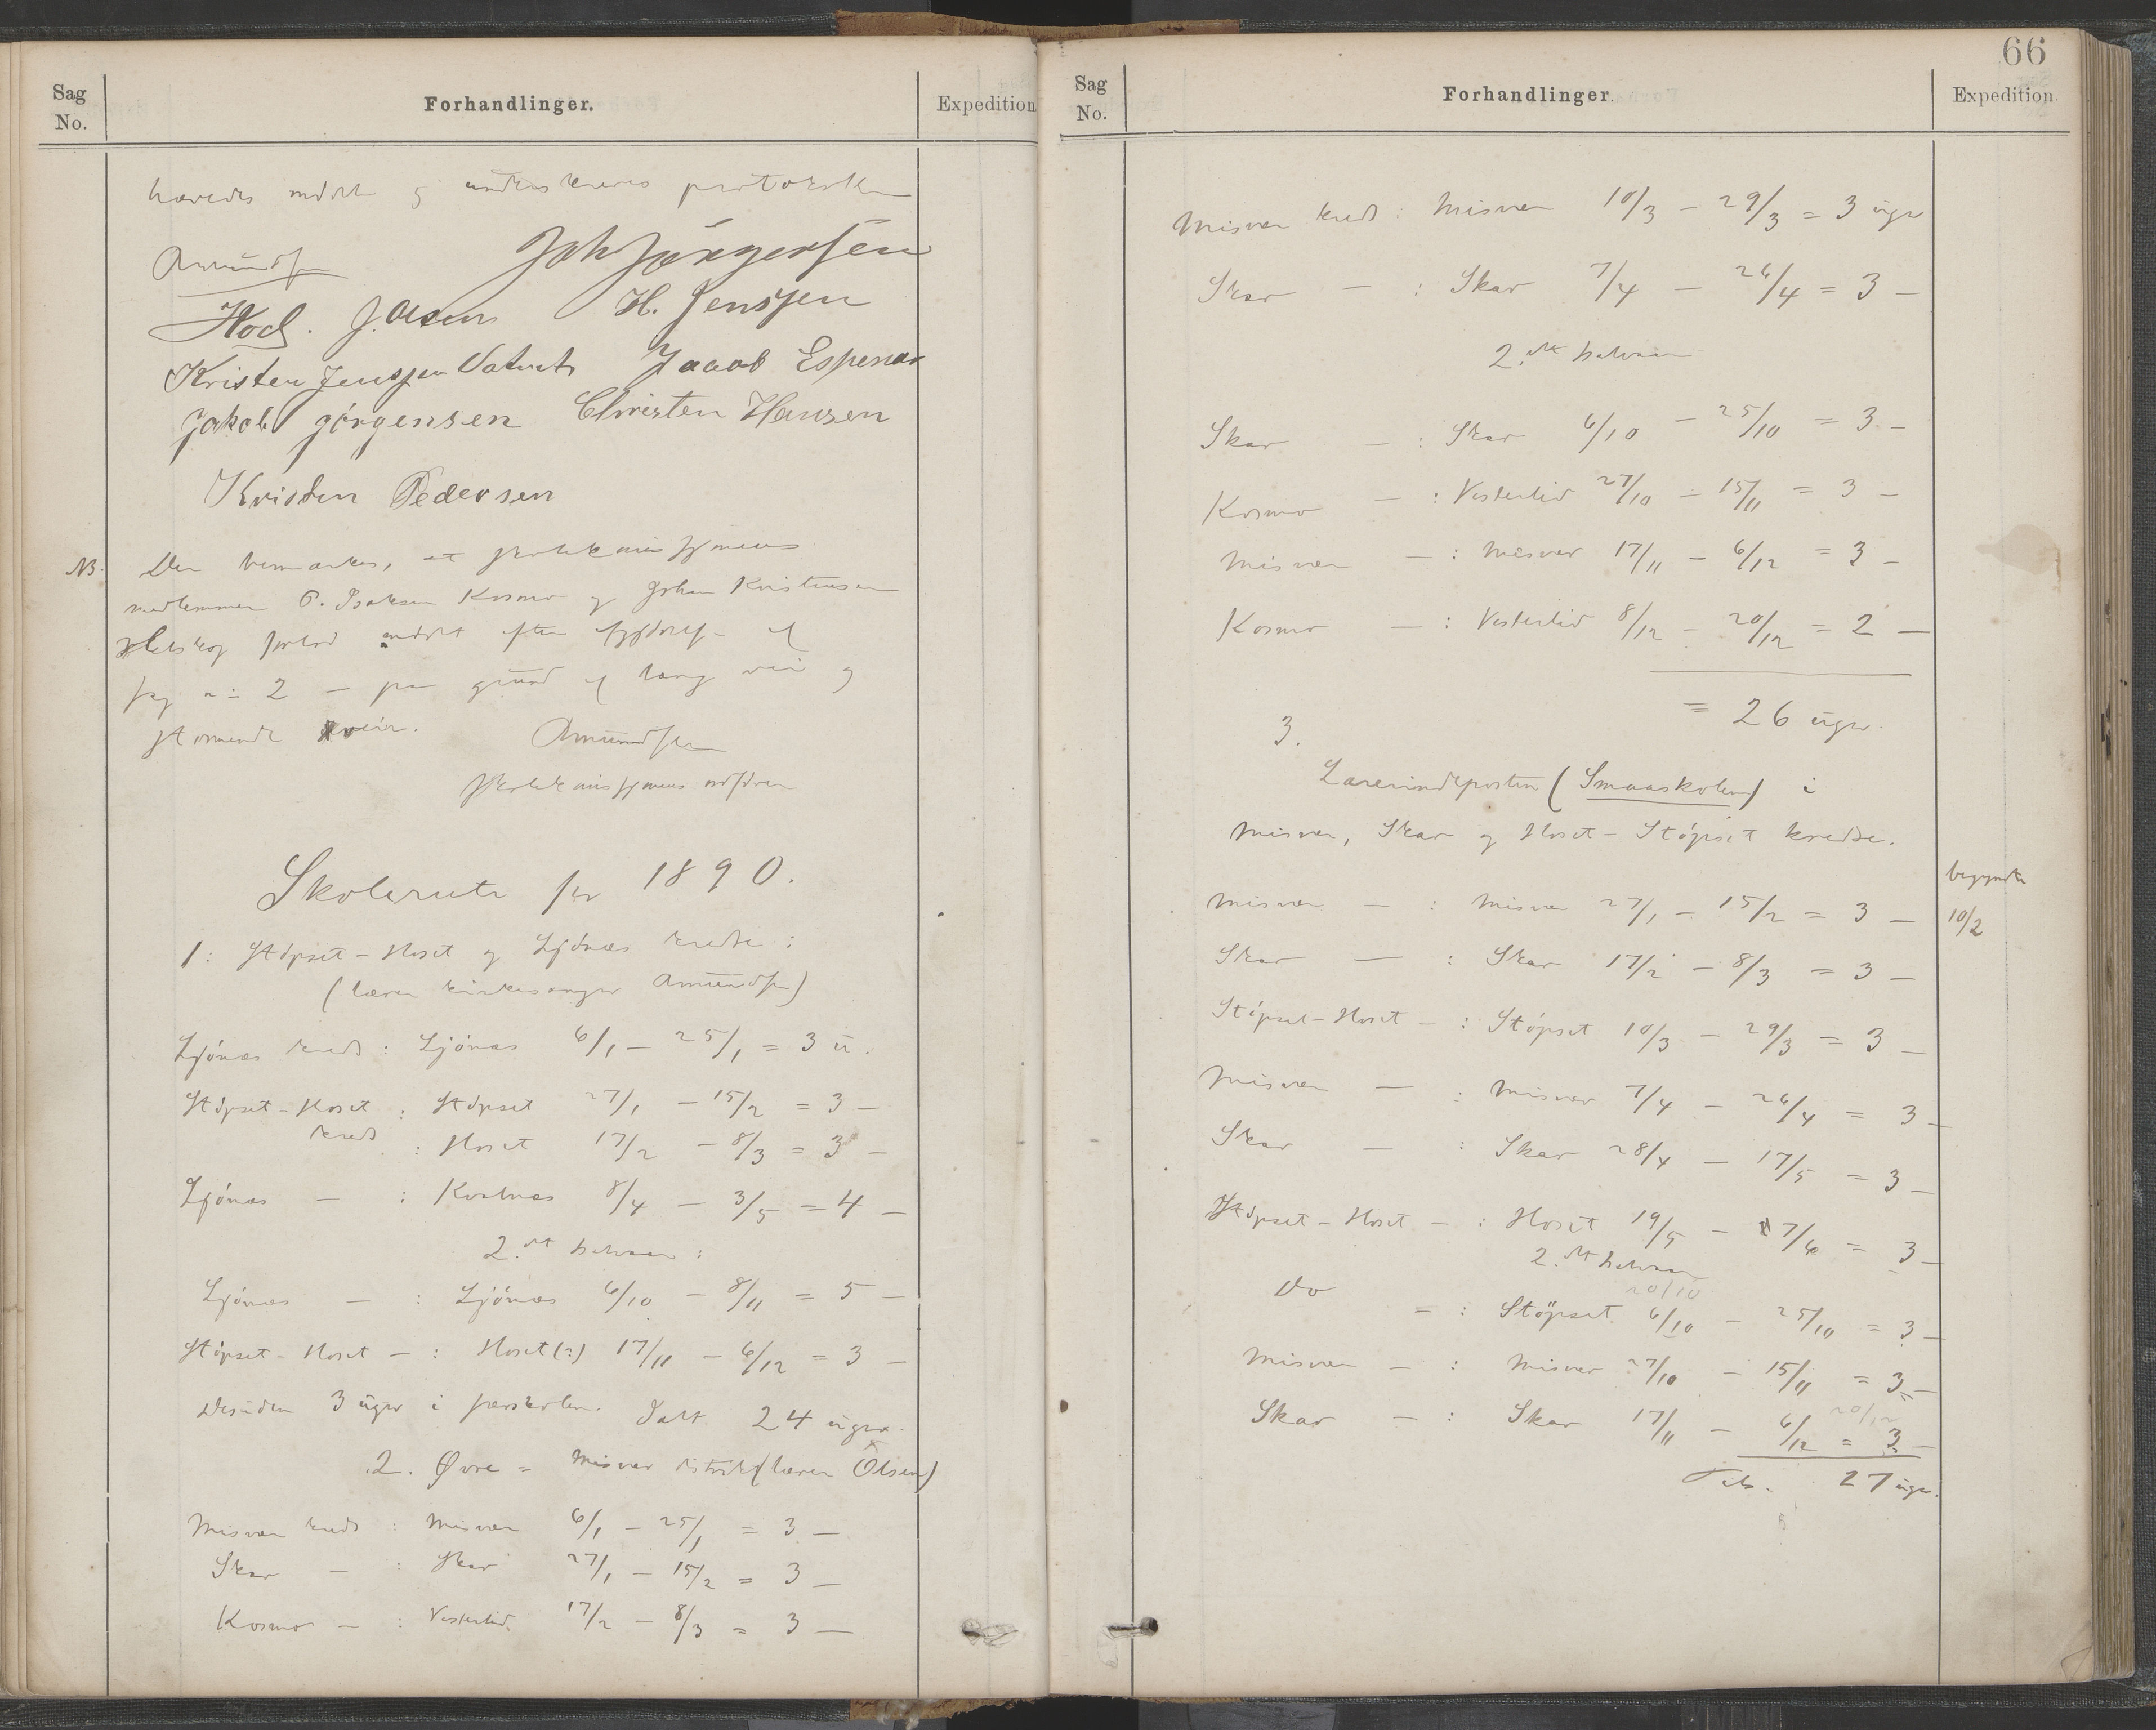 Sag
No.
Forhandlinger.
Expedition
hævedes mødet og underskreves protokollen
Amundsen Joh Jörgensen
Hod. J. Olsen H. Jenssen
Kristen Jenssen Vatnet Jacob Espenes
Jakob Jörgensen Christen Hansen
Kristen Pedersen
NB. Der bemærkes, at skolekommissionens
medlemmer P. Isaksen Kosmo og Johan Kristensen
forlod mødet efter af
sag n: 2 - paa grund af lang vei og
stormende veir. Amundsen
skolekommissionens ordfører
Skolerute for 1890.
1: Støpset-Hoset og Ljönæs kredse:
(lærer kirkesanger Amundsen)
Ljönæs kreds: Ljönæs 6/1 - 25/1 = 3 u.
Støpset-Hoset : Støpset 27/1 - 15/2 = 3 -
kreds : Hoset 17/2 - 8/3 = 3 -
Ljönæs - : Kvalnæs 8/4 - 3/5 = 4 -
2.det halvaar:
Ljönæs - : Ljönæs 6/10 - 8/11 = 5 -
Støpset-Hoset - : Hoset(?) 17/11 - 6/12 = 3 -
Desuden 3 uger i Ialt 24 uger.
2. Øvre = Misvær distrikt (lærer Olsen)
Misvær kreds : Misvær 6/1 - 25/1 = 3 -
Skar - : Skar 27/1 - 15/2 = 3 -
Kosmo - : Vesterlid. 17/2 - 8/3 = 3 -
66
Sag
No.
Forhandlinger
Expedition
Misvær kreds : Misvær 10/3 - 29/3 = 3 uger
Skar - : Skar 7/4 - 26/4 = 3 -
2.det halvaar
Skar - : Skar 6/10 - 25/10 = 3 -
Kosmo - : Vesterlid 27/10 - 15/11 = 3 -
Misvær - : Misvær 17/11 - 6/12 = 3 -
Kosmo - : Vesterlid 8/12 - 20/12 = 2 -
= 26 uger.
3.
Lærerindeposten (Smaaskolen) i
Misvær, Skar og Hoset-Støpset kredse.
begyndte
Misvær - : Misvær 27/1 - 15/2 = 3 - 10/2
Skar - : Skar 17/2 - 8/3 = 3 -
Støpset-Hoset - : Støpset 10/3 - 29/3 = 3 -
Misvær - : Misvær 7/4 - 26/4 = 3 -
Skar - : Skar 28/4 - 17/5 = 3 -
Støpset-Hoset - : Hoset 19/5 - 7/6 = 3 -
2.det halvaar
20/10
Do = : Støpset 6/10 - 25/10 = 3 -
Misvær - : Misvær 27/10 - 15/11 = 3 -
20/12
Skar - : Skar 17/11 - 6/12 = 3 -
27 uger.